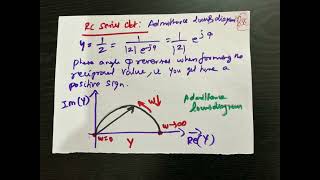 RC Series Ckt: Admittance locus diagram
Y = 1/Z = 1/(|Z| e^-jφ) = 1/|Z| e^jφ
Phase angle φ reverses when forming the
reciprocal value, i.e. you get here a
positive sign.
Im(Y)
ω↓
Admittance
locus diagram
ω=0
ω→∞
Y
Re(Y)